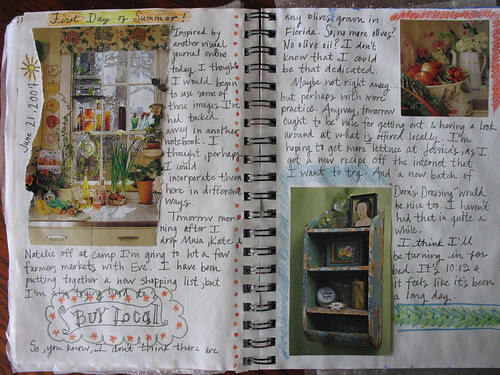 First Day of Summer!
June 21, 2007
Inspired by
another visual
journal online
today I thought
I would begin
to use some of
these images I've
had tucked
away in another
notebook. I
thought, perhaps
I could
incorporate them
here in different
ways.
Tomorrow mor-
ning after I
drop Maia Kate &
Natalie off at camp I'm going to hit a few
farmers markets with Eve. I have been
putting together a new shopping list, but
I'm trying to
BUY LOCAL
So, you know, I don't think there are
any olives grown in
Florida. So, no more olives?
No olive oil? I don't
know that I could
be that dedicated.
Maybe not right away...
but perhaps with more
practice. Anyway, tomorrow
ought to be nice for getting out & having a look
around at what is offered locally. I'm
hoping to get more lettuce at Jessica's as I
got a new recipe off the internet that
I want to try. And a new batch of
Dora's Dressing would
be nice too. I haven't
had that in quite a
while.
I think I'll
be turning in for
bed. It's 10:12 &
it feels like it's been
a long day.